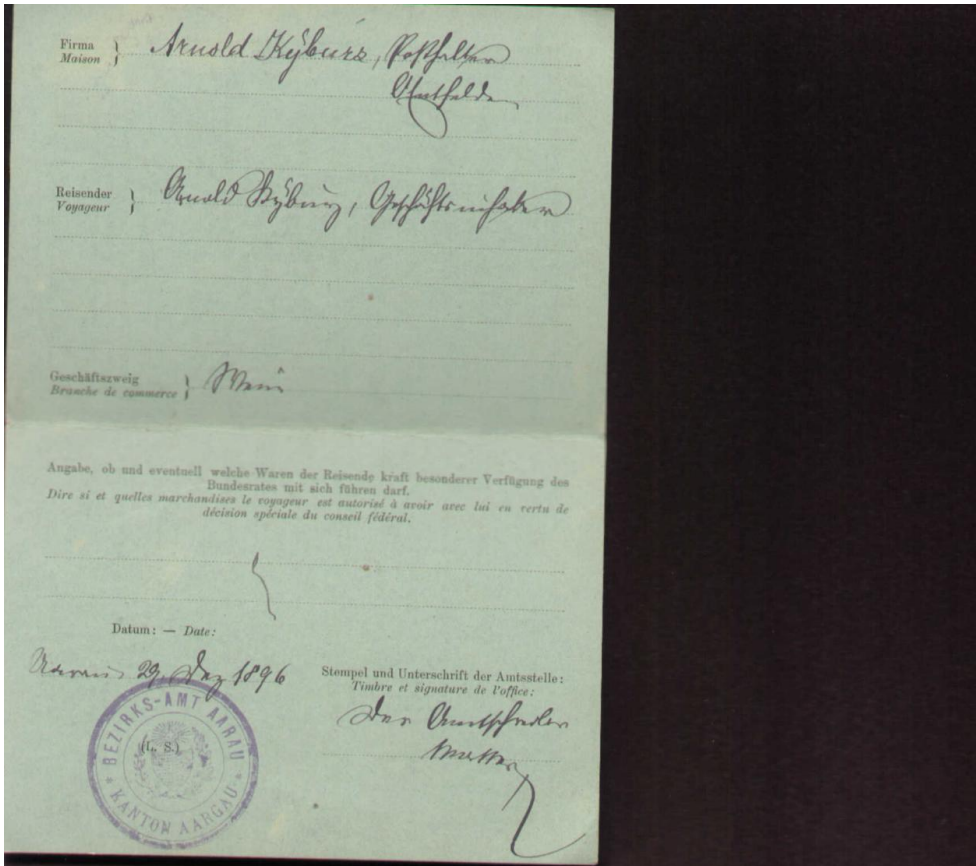 Firma
Maison } Arnold Kyburz, Posthalter
Entfelden
Reisender
Voyageur } Arnold Kyburz, Geschäftsinhaber
Geschäftszweig
Branche de commerce } Wein
Angabe, ob und eventuell welche Waren der Reisende kraft besonderer Verfügung des
Bundesrates mit sich führen darf.
Dire si et quelles marchandises le voyageur est autorisé à avoir avec lui en vertu de
décision spéciale du conseil fédéral.
Datum: — Date:
Aarau 29. Dez 1896
Stempel und Unterschrift der Amtsstelle:
Timbre et signature de l'office:
Der Amtschreiber
BEZIRKS-AMT AARAU
(L. S.)
* KANTON AARGAU *